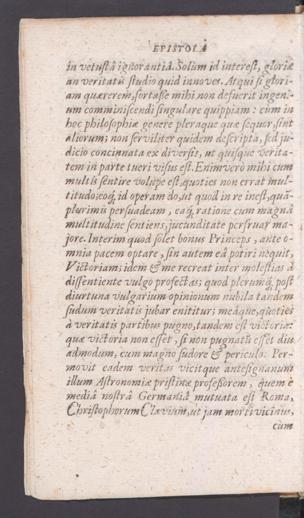 EPISTOLA
in vetustâ ignorantiâ. Solùm id interest, gloriæ
an veritatis studio quid innoves. At qui si glori-
am quærerem, fortaße mihi non defuerit ingeni-
um comminiscendi singulare quippiam: cum in
hoc philosophiæ genere pleraque quæ sequor, sint
aliorum; non serviliter quidem descripta, sed ju-
dicio concinnata ex diversis, ut quisque verita-
tem in parte tueri visus est. Enimverò mihi cum
multis sentire volupe est, quoties non errat mul-
titudo; eoq́; id operam do, ut quod in re inest, quàm
plurimis persuadeam, eaq́; ratione cum magnâ
multitudine sentiens, jucunditate perfruar ma-
jore. Interim quod solet bonus Princeps, ante o-
mnia pacem optare, sin autem eâ potiri nequit,
Victoriam; idem & me recreat inter molestias à
dissentiente vulgo profectas; quod plerumq́; post
diurtuna vulgarium opinionum nubila tandem
sudum veritatis jubar enititur; meâque, quoties
à veritatis partibus pugno, tandem est victoria:
quæ victoria non esset, si non pugnatũ esset diu
admodum, cum magno sudore & periculo. Per-
movit eadem veritas vicitque antesignanum
illum Astronomiæ pristinæ professorem, quem è
mediâ nostrâ Germaniâ mutuata est Roma,
Christophorum Clavium, ut jam morti vicinus,
cùm